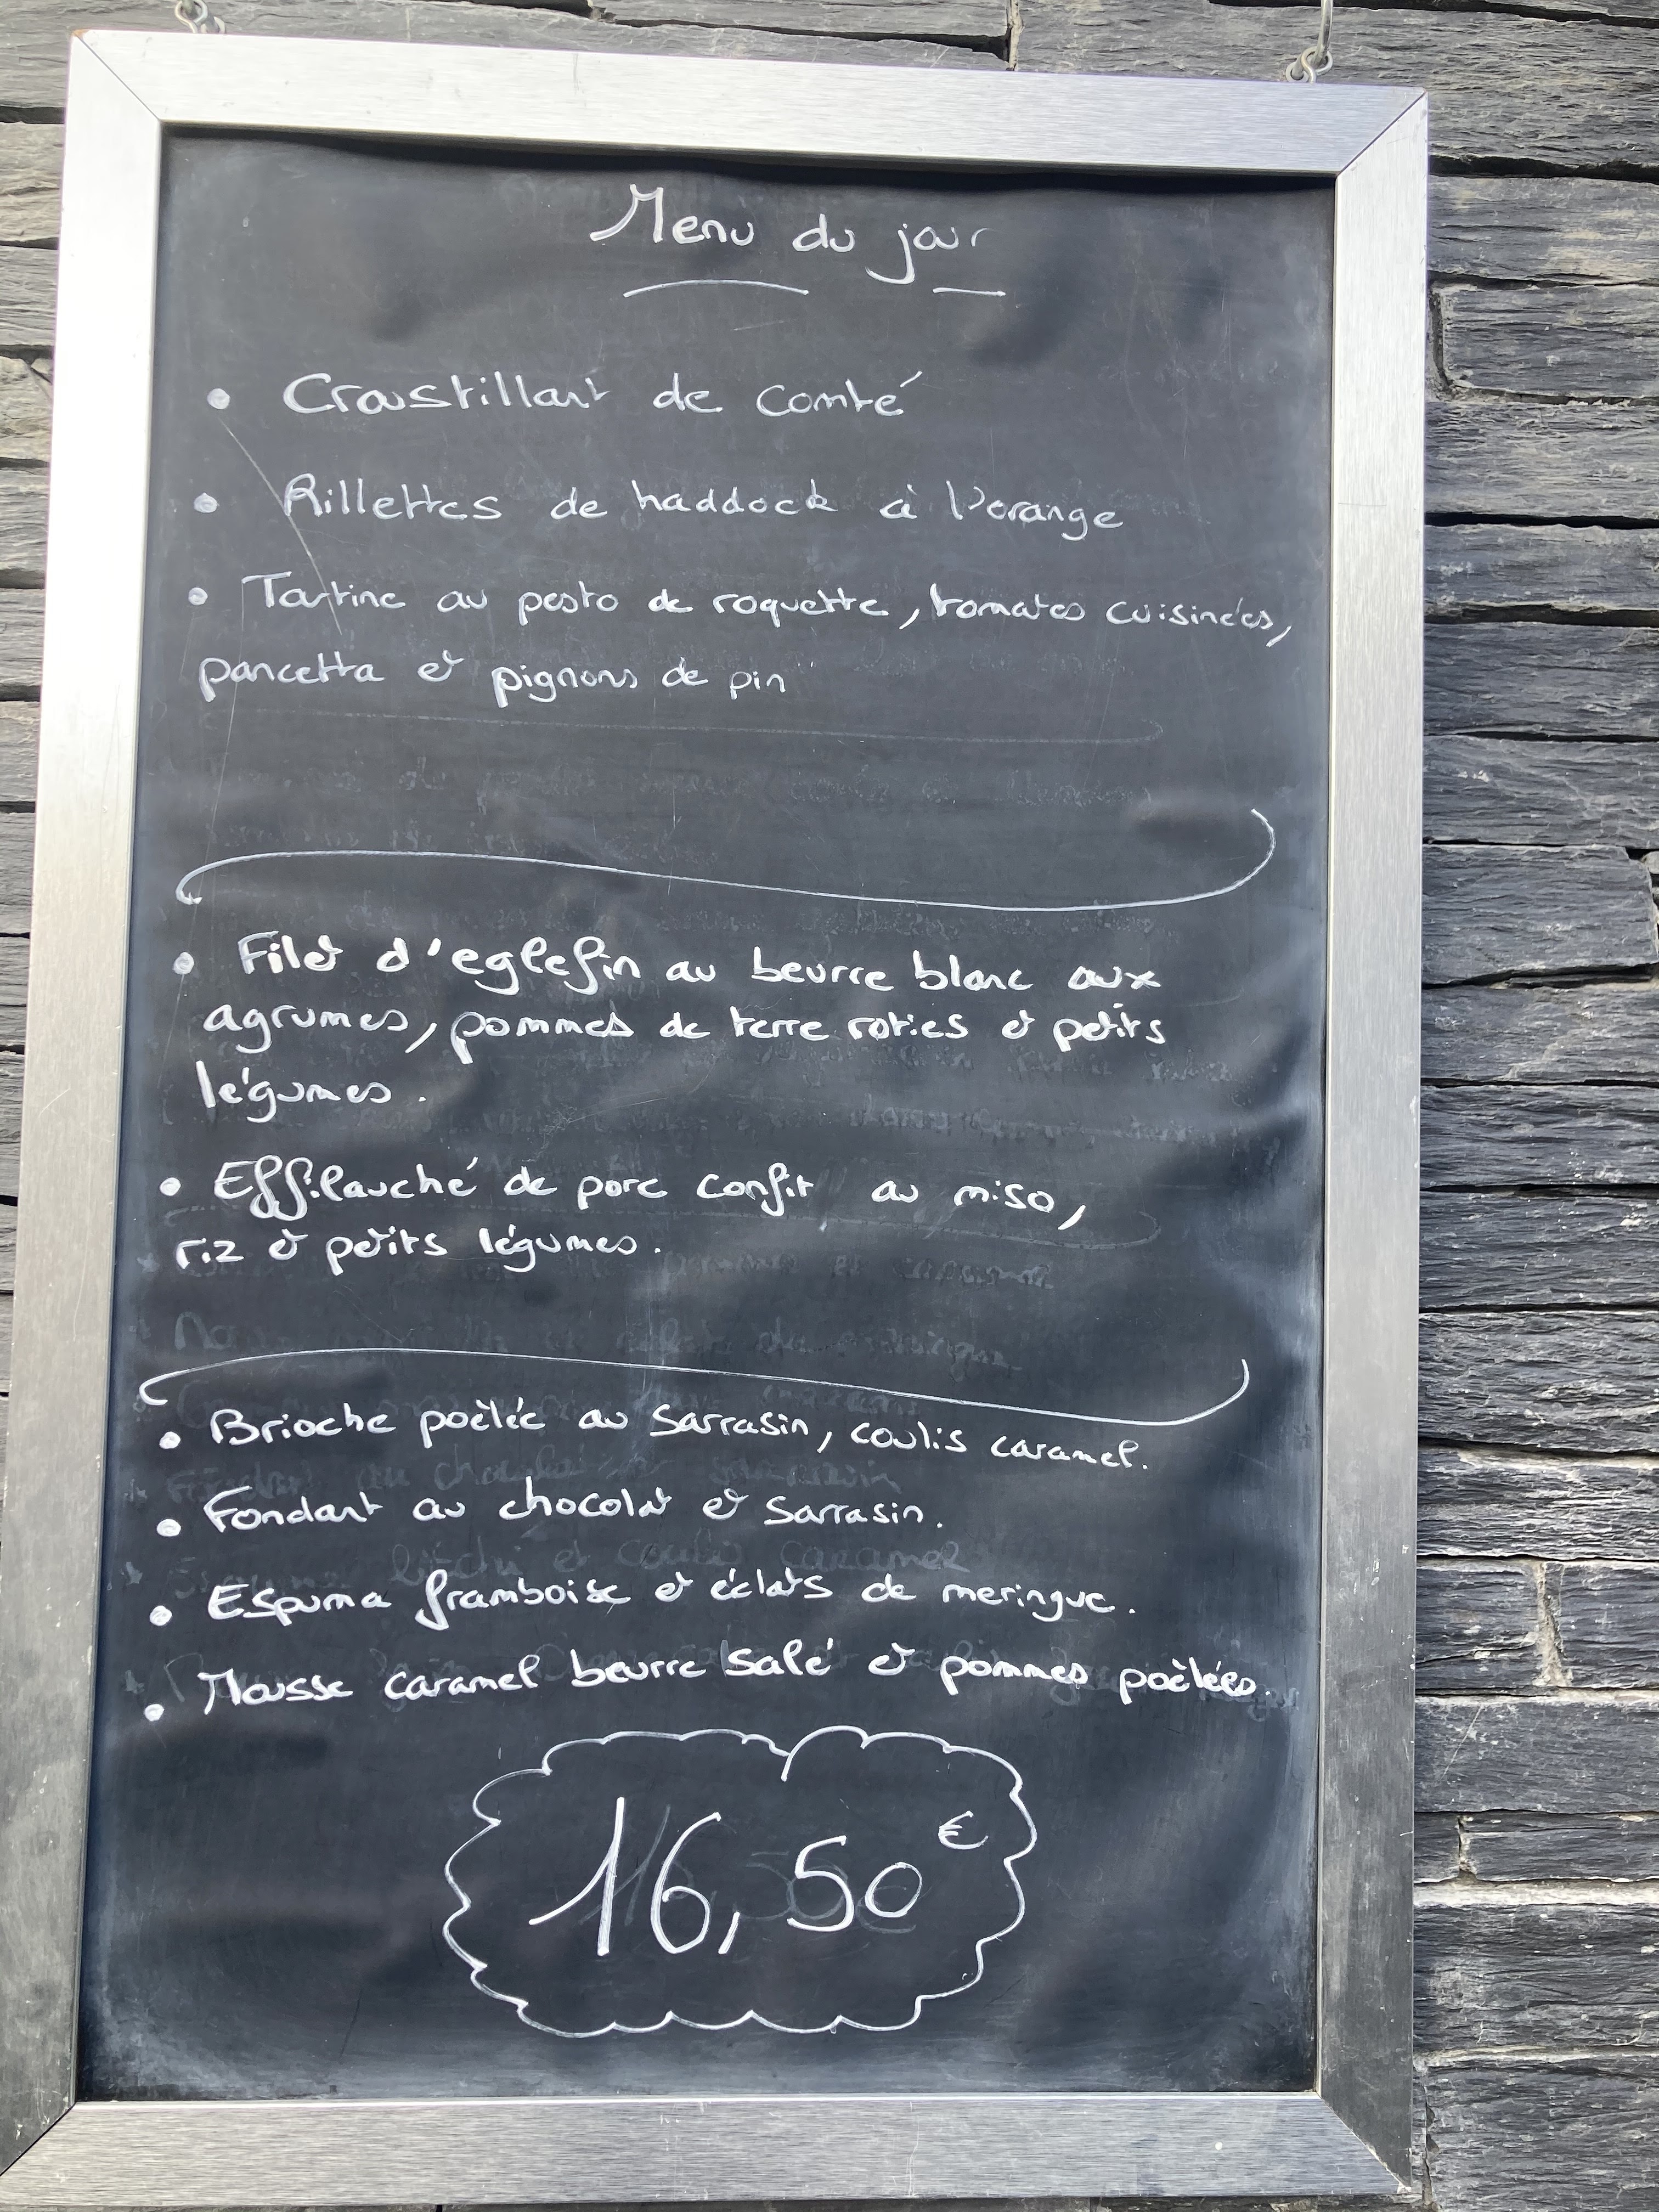 Menu du jour
• Croustillant de comté
• Rillettes de haddock à l'orange
• Tartine au pesto de roquette, tomates cuisinées,
pancetta et pignons de pin
• Filet d'eglefin au beurre blanc aux
agrumes, pommes de terre roties et petits
légumes.
• Effilauché de porc confit au miso,
riz et petits légumes.
• Brioche poêlée au sarrasin, coulis caramel.
• Fondant au chocolat et sarrasin.
• Espuma framboise et éclats de meringue.
• Mousse caramel beurre salé et pommes poêlées.
16,50 €